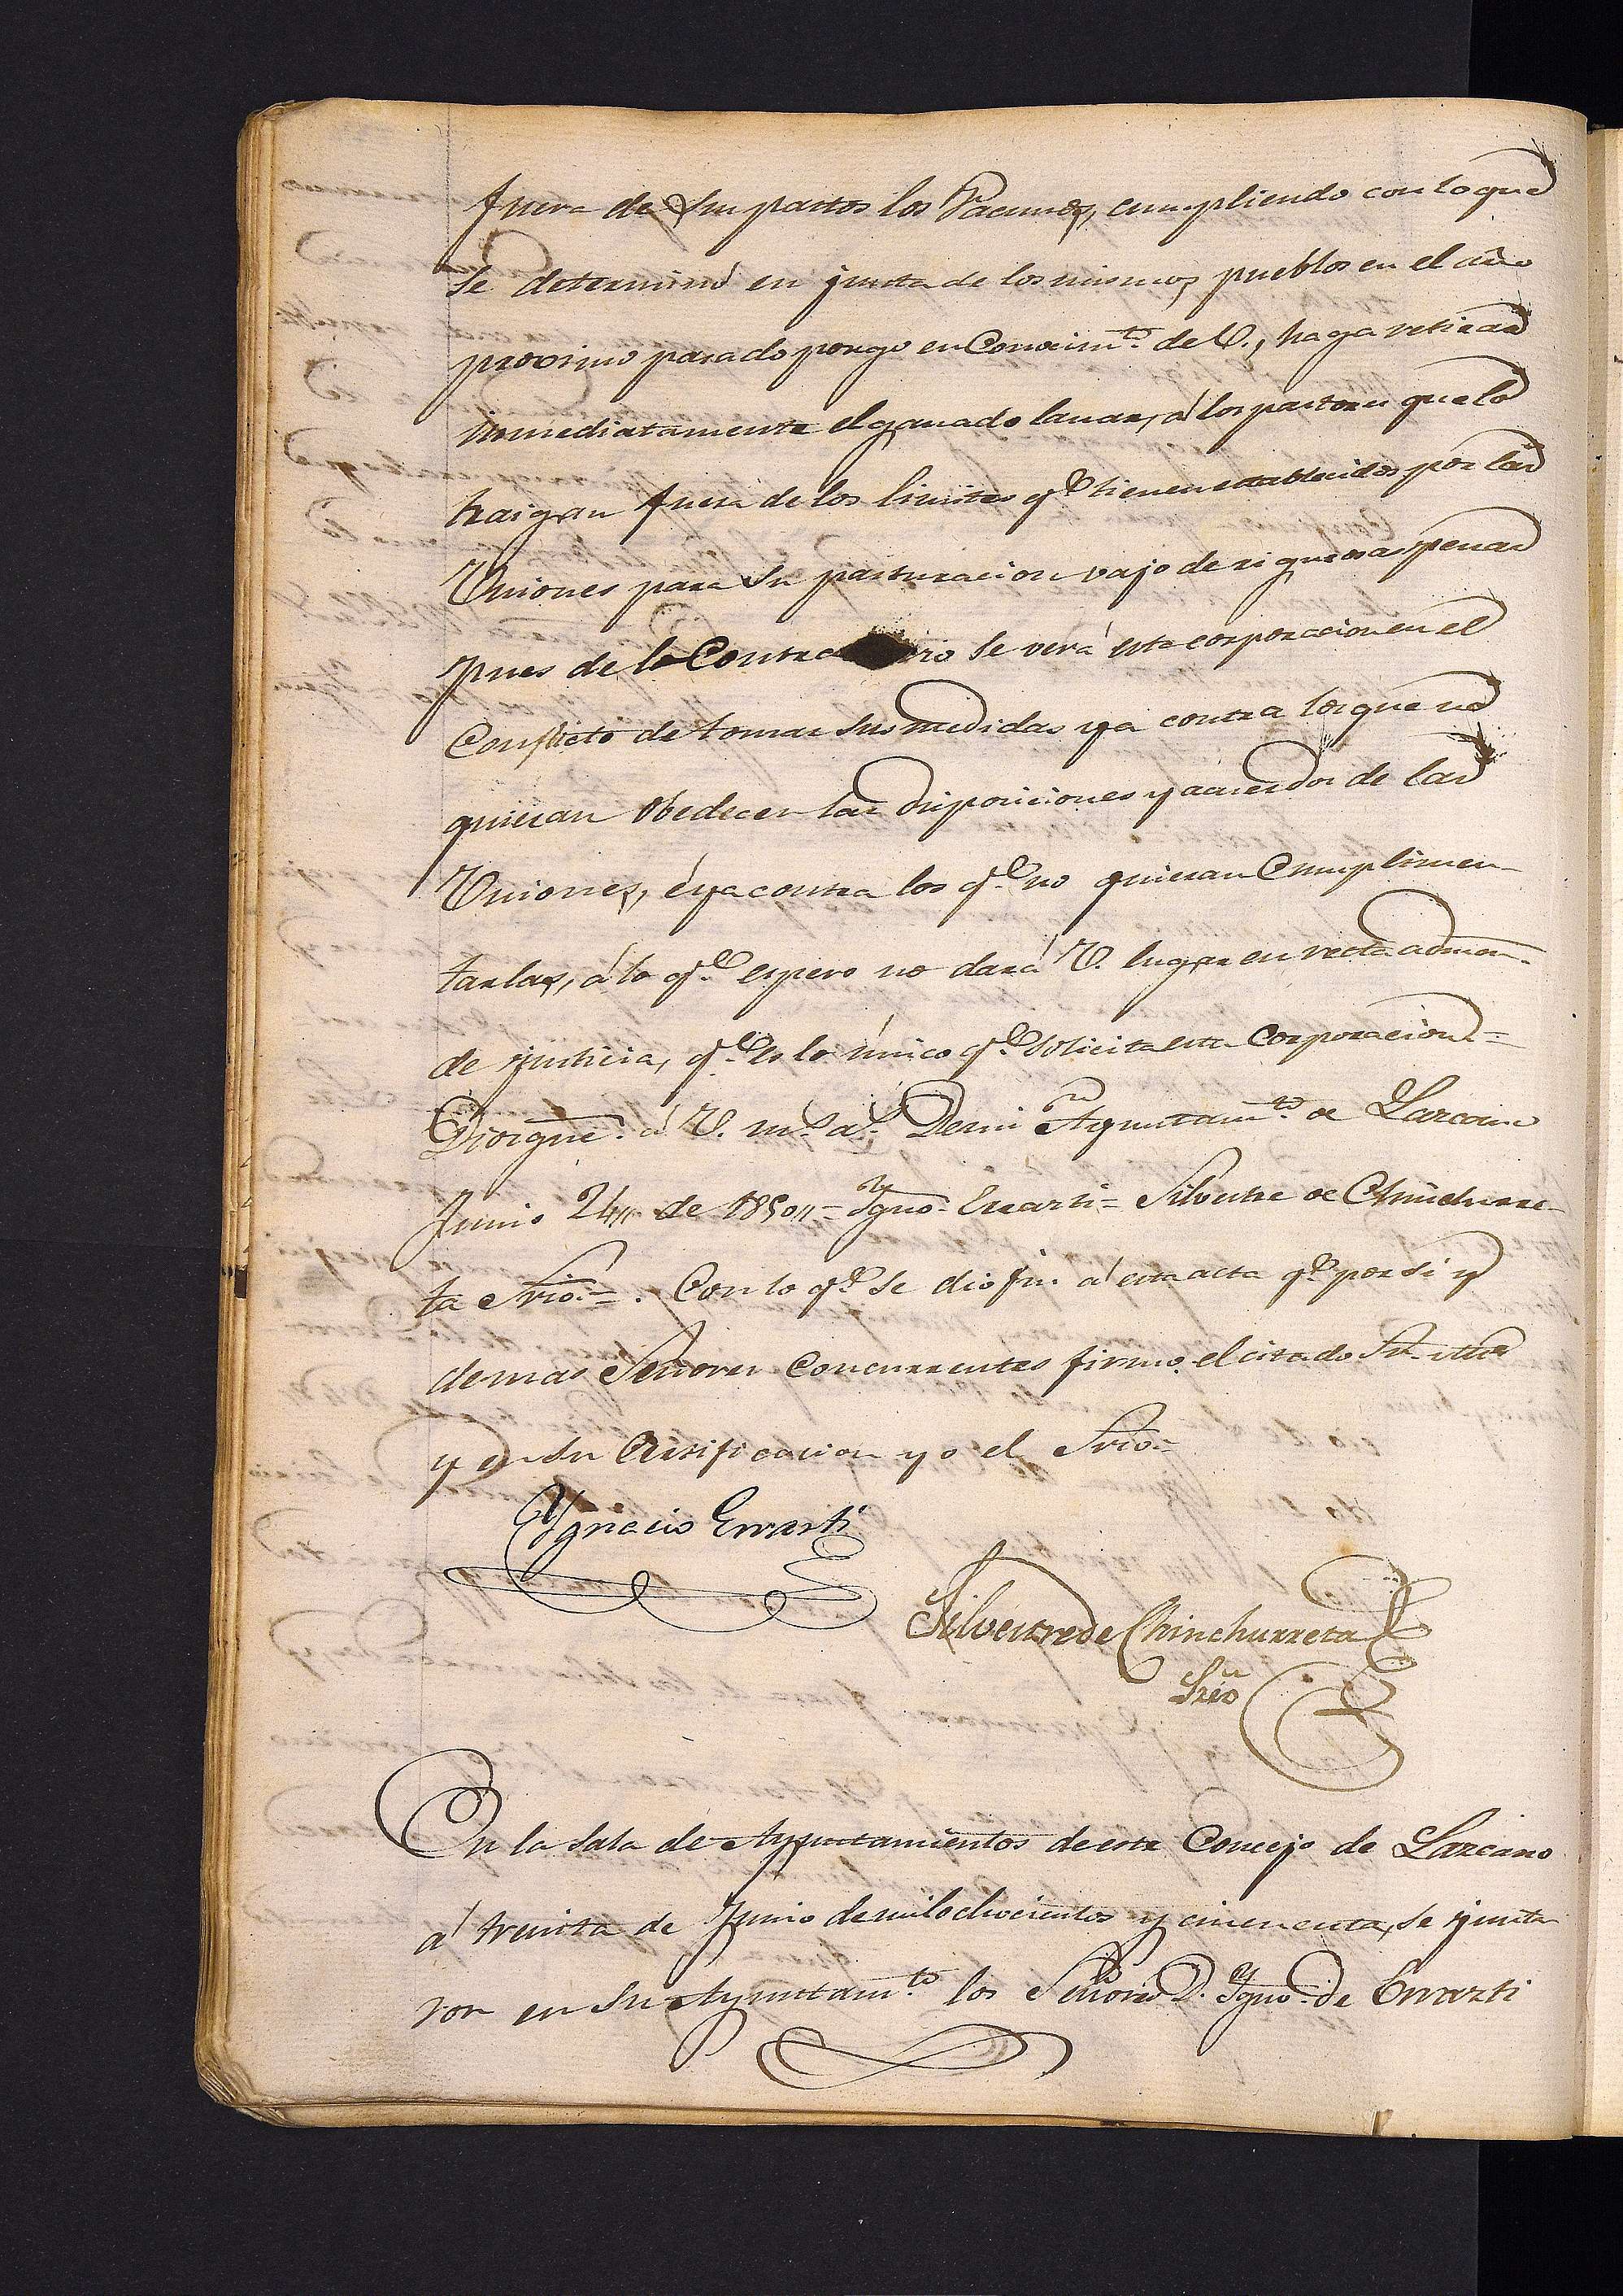 fuera de su pastos los Vacunos, cumpliendo con lo que
se determinó en junta de los mismos pueblos en el año
procsimo pasado pongo en Conocim.to de V., haga retirar
inmediatamente el ganado lanar, á los pastores que lo
traigan fuera de los limites q.e tienen establecidos por las
Uniones para su pasturacion vajo de rigurosas penas
pues de lo Contrario se verá esta corporacion en el
Conflicto de tomar sus medidas ya contra los que no
quieran Obedecer las disposiciones y acuerdos de las
Uniones, éya contra los q.e no quieran Cumplimen-
tarlas, á lo q.e espero no dará V. lugar en recta admon.
de justicia, q.e es lo único q.e solicita esta Corporacion=
Dios gue. á V. m.s a.s De mi Ayuntam.to de Lazcano
Junio 24 de 1850= Ygno. Errarti= Silvestre de Chinchurre-
ta Srio.=. Con lo q.e se dio fin á esta acta q.e por si y
demas Señores Concurrentes firmo el citado Sr.
y en su Certificacion yo el Srio=
Ygnacio Errarti
Silvestre de Chinchurreta
Srio
En la Sala de Ayuntamientos de este Concejo de Lazcano
á treinta de Junio de mil ochocientos y cincuenta, se junta
ron en su Ayuntam.to los Señores D. Ygno. de Errazti